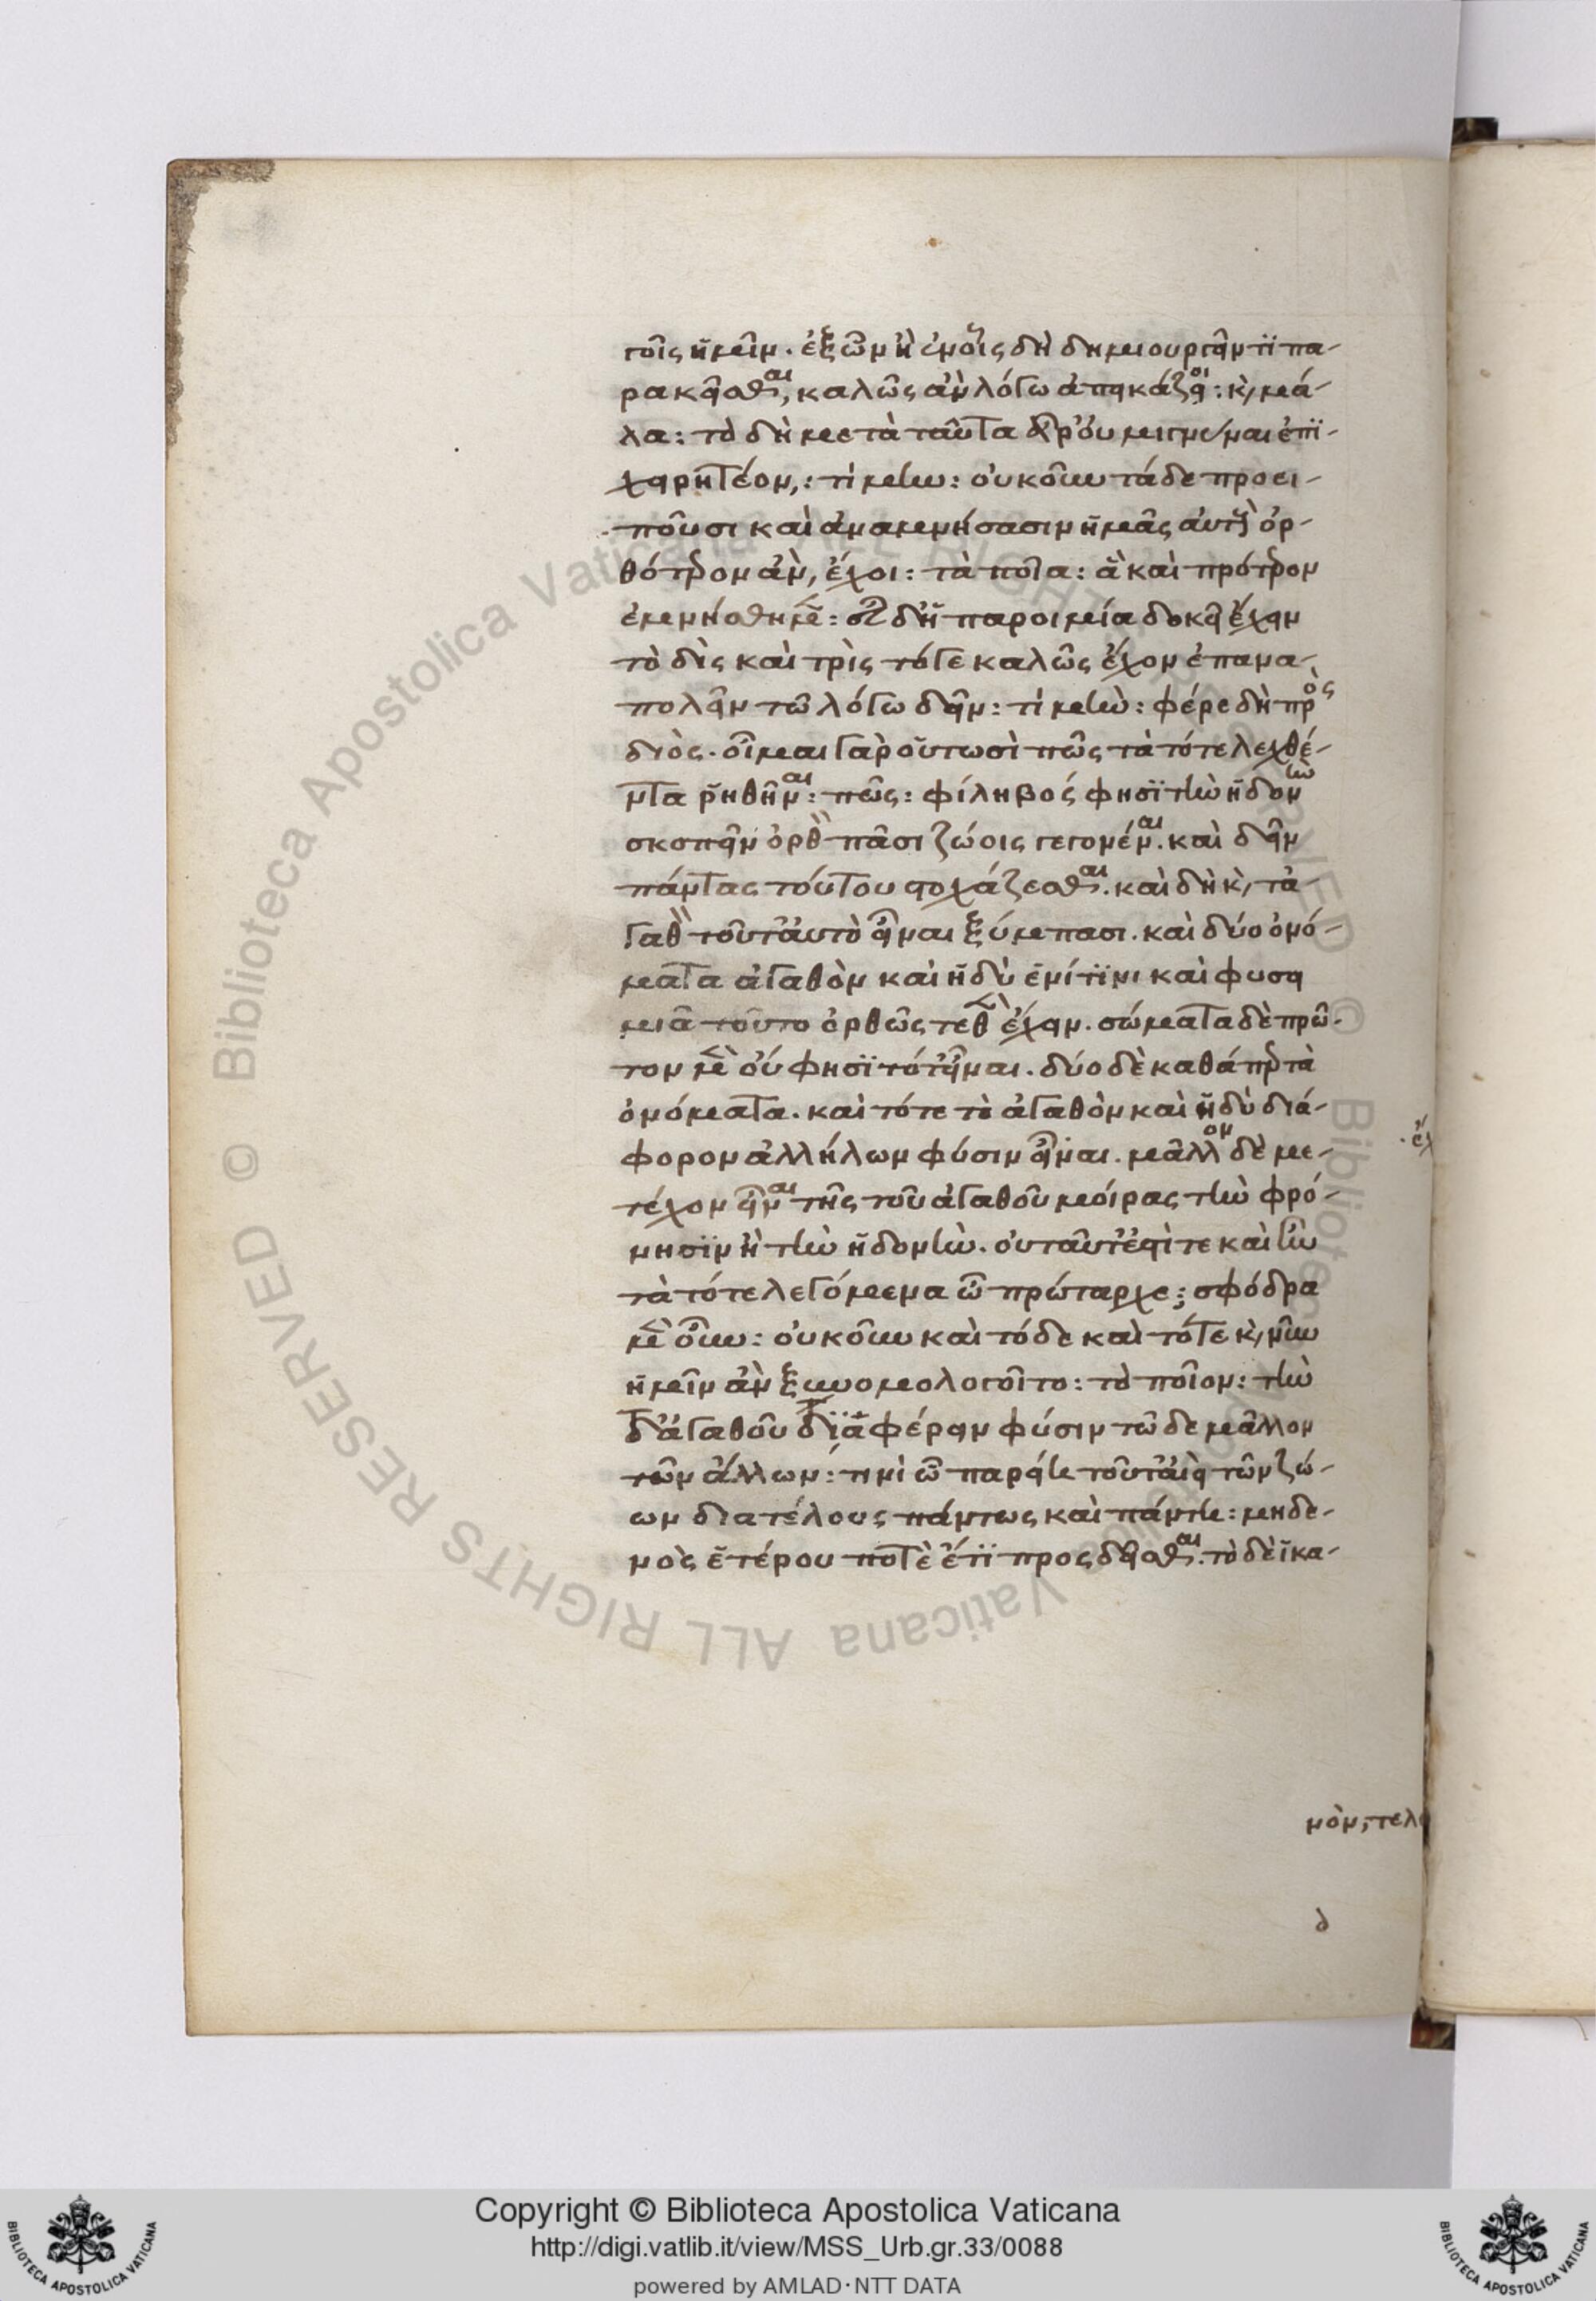 τοῖς ἡμῖν. ἐξ ὧν ἢ ἐν οἷς δεῖ δημιουργεῖν τι πα-
ρακεῖσθαι, καλῶς ἂν λόγω ἀπεικάζοι: καὶ μά-
λα: τὸ δὴ μετὰ ταῦτα ἆρ' οὐ μιγνύναι ἐπι-
χειρητέον,: τί μὴν: οὐκοῦν τάδε προει-
ποῦσι καὶ ἀναμνήσασιν ἡμᾶς αὐτοὺς ὀρ-
θότερον ἂν, ἔχοι: τὰ ποῖα: ἃ καὶ πρότερον
ἐμνήσθημεν: εὖ δ' ἡ παροιμία δοκεῖ ἔχειν
τὸ δὶς καὶ τρὶς τό γε καλῶς ἔχον ἐπανα-
πολεῖν τῶ λόγω δεῖν: τί μὴν: φέρε δὴ πρὸς
διός. οἶμαι γὰρ οὑτωσὶ πῶς τὰ τότε λεχθέ-
ντα ῥηθῆναι: πῶς: φίληβός φησι τὴν ἡδονὴν
σκοπεῖν ὀρθὸν πᾶσι ζώοις γεγονέναι. καὶ δεῖν
πάντας τούτου στοχάζεσθαι. καὶ δὴ καὶ τἀ-
γαθὸν τοῦτ' αὐτὸ εἶναι ξύμπασι. καὶ δύο ὀνό-
ματα ἀγαθὸν καὶ ἡδὺ ἑνί τινι καὶ φύσει
μιᾶ τοῦτο ὀρθῶς τεθὲν ἔχειν. σώματα δὲ πρῶ-
τον μὲν οὔ φησι τότ' εἶναι. δύο δὲ καθάπερ τὰ
ὀνόματα. καὶ τότε τὸ ἀγαθὸν καὶ ἡδὺ διά-
φορον ἀλλήλων φύσιν εἶναι. μᾶλλον δὲ με-
τέχον εἶναι τῆς τοῦ ἀγαθοῦ μοίρας τὴν φρό-
νησιν ἢ τὴν ἡδονήν. οὐ ταῦτ' ἔστι τε καὶ ἦν
τὰ τότε λεγόμενα ὦ πρώταρχε; σφόδρα
μὲν οὖν: οὐκοῦν καὶ τόδε καὶ τότε καὶ νῦν
ἡμῖν ἂν ξυνομολογοῖτο: τὸ ποῖον: τὴν
τἀγαθοῦ διαφέρειν φύσιν τῶδε μᾶλλον
τῶν ἄλλων: τινὶ ὦ παρείη τοῦτ' ἀεὶ τῶν ζώ-
ων διατέλους πάντως καὶ πάντη: μηδε-
νὸς ἑτέρου ποτὲ ἔτι προσδεῖσθαι. τὸ δὲ ἱκα-
νὸν, τελ
δ
Copyright © Biblioteca Apostolica Vaticana
http://digi.vatlib.it/view/MSS_Urb.gr.33/0088
powered by AMLAD·NTT DATA